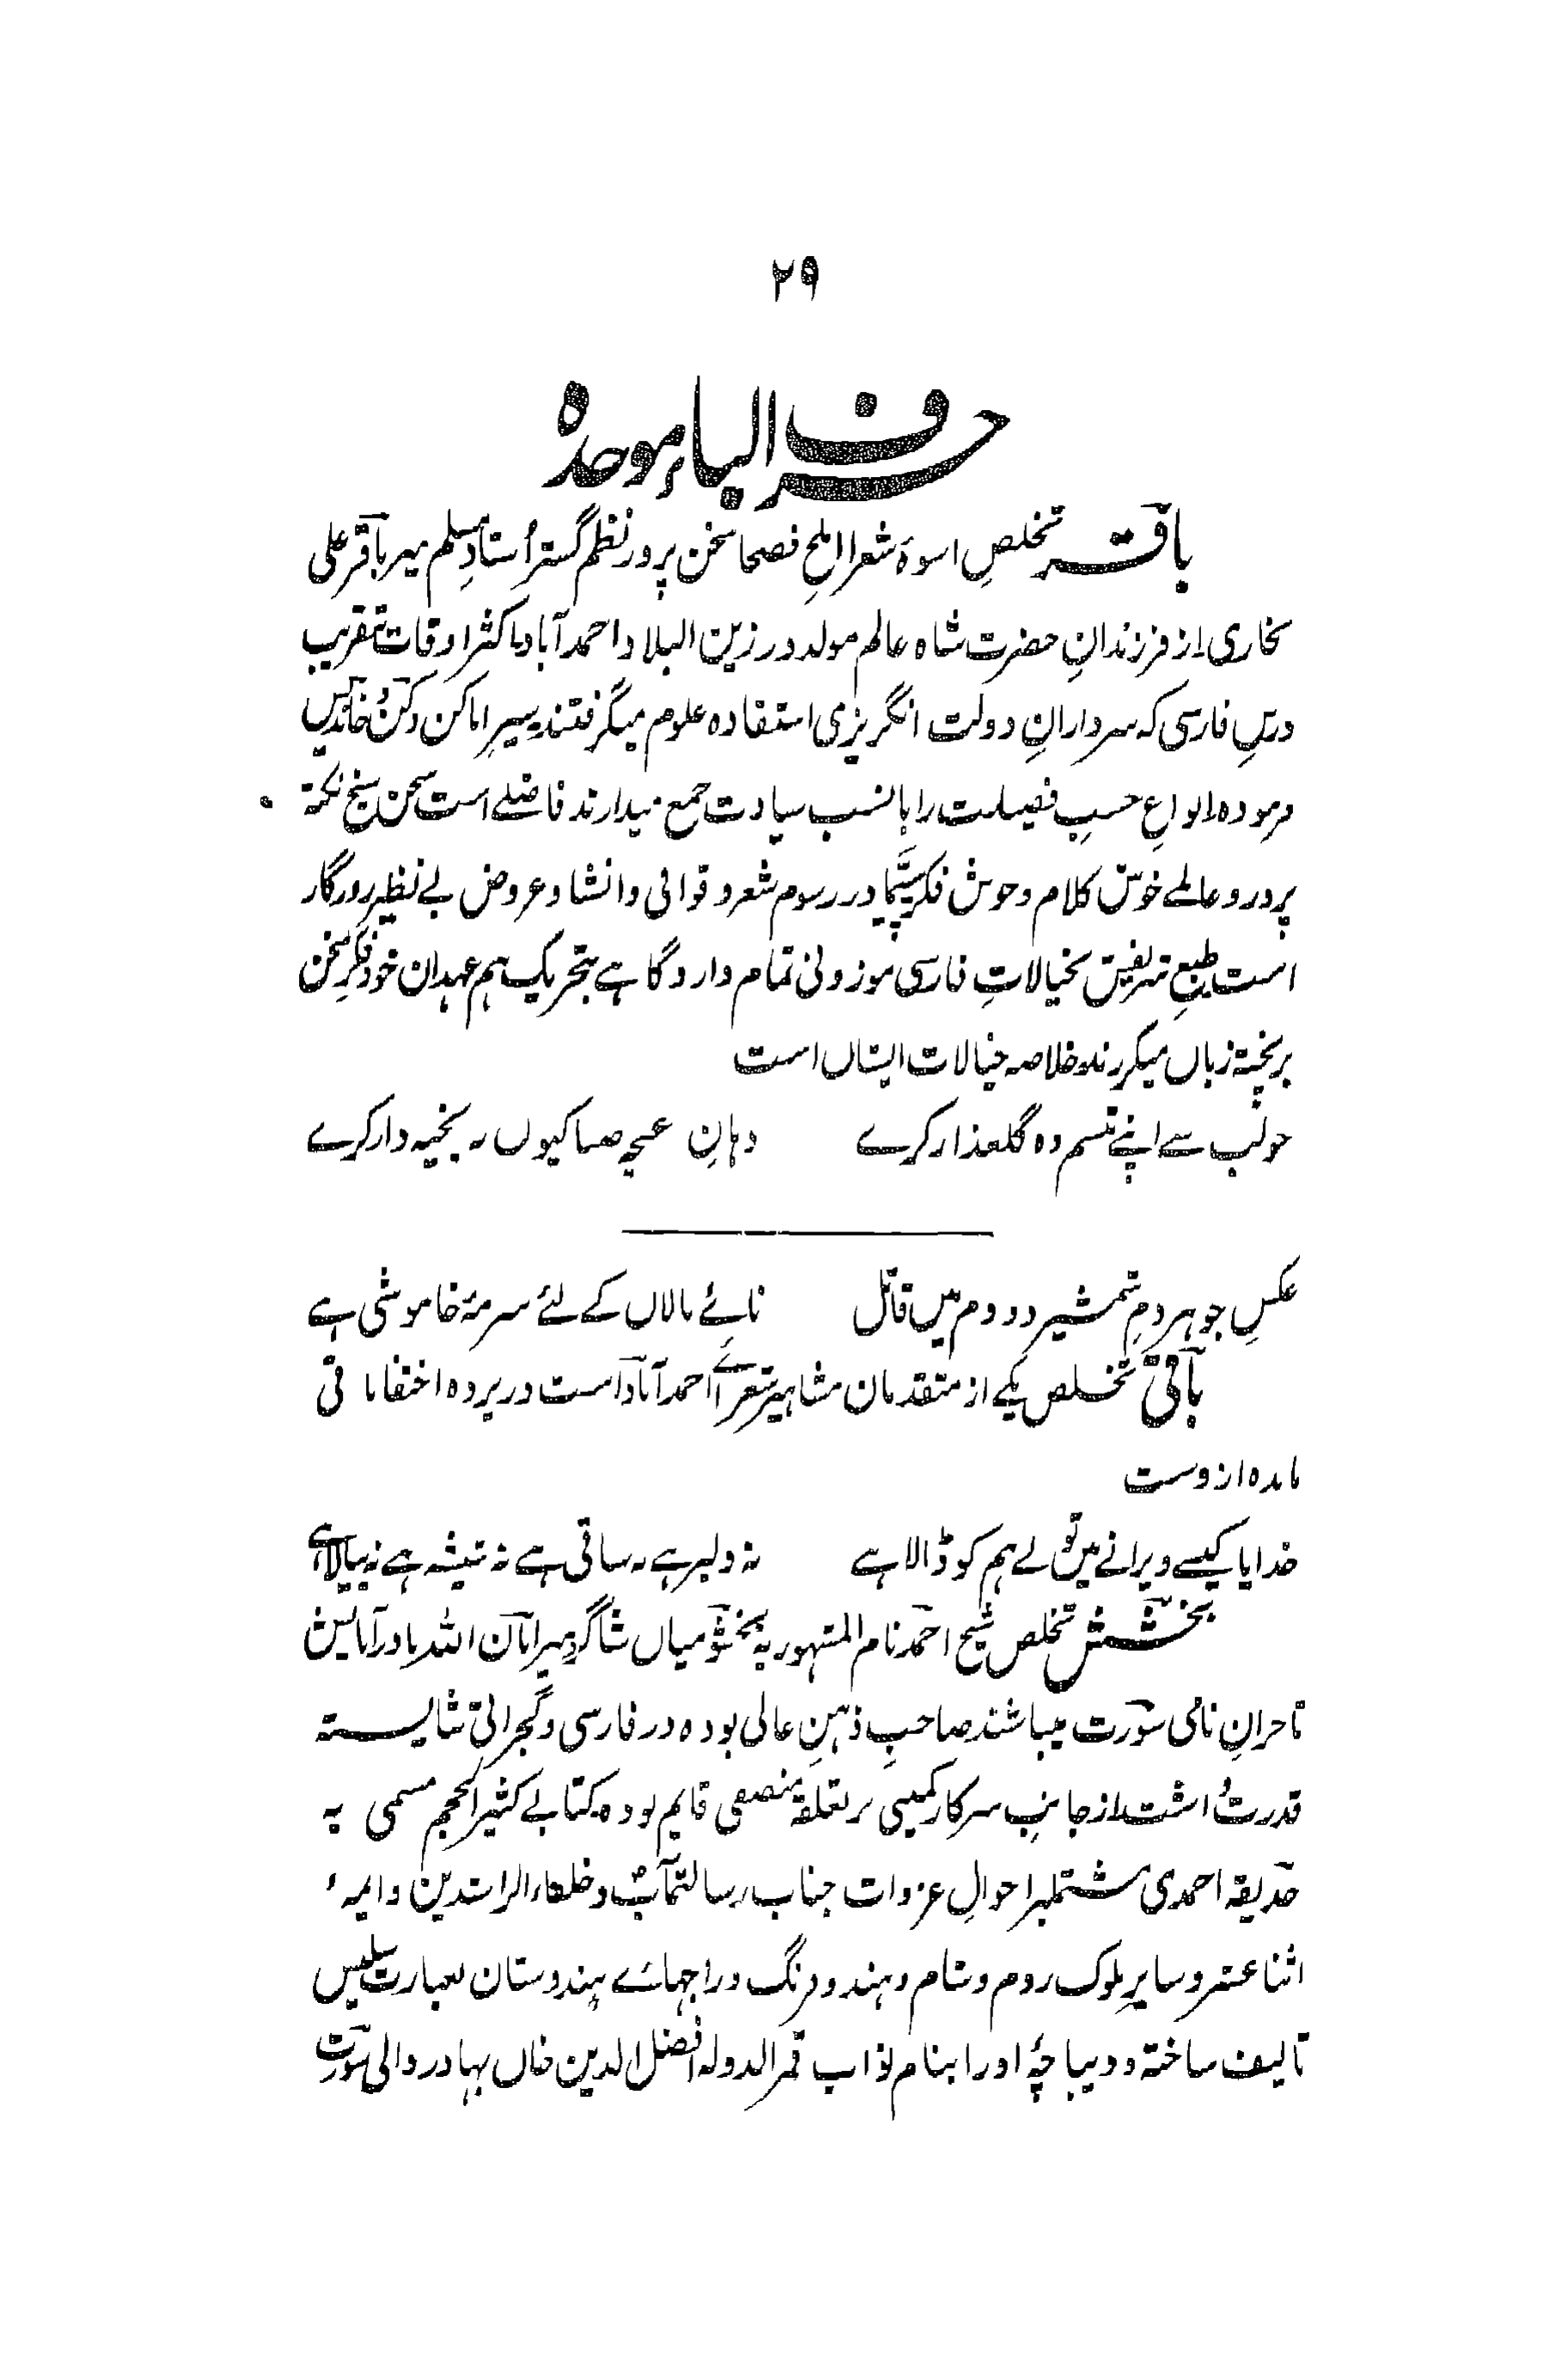 ۲۹
حرف الباء موحدہ
باقر تخلصِ اسوۂ شعرا املحِ فصحا سخن پرور نظم گستر اُستادِ مسلم میر باقر علی
بخاری از فرزندانِ حضرت شاہ عالم مولد در زین البلاد احمد آباد اکثر اوقات بتقریب
درسِ فارسی کہ سردارانِ دولت انگریزی استفادہ علوم میگرفتند سیرِ اماکن دکن و خاندیس
فرمودہ انواعِ حسبِ فضیلت را با نسب سیادت جمع میدارند فاضلے است سخن سنج نکتہ
پرور و عالمے خوش کلام و خوش فکر در رسوم شعر و قوافی و انشا و عروض بے نظیر روزگار
است طبعِ شریفش بخیالاتِ فارسی موزونی تمام دارد گاہے بتحریک ہم عہدان خود فکرِ سخن
بریختہ زباں میکردند خلاصہ خیالات ایشاں است
جو لب سے اپنے تبسم وہ گلعذار کرے دہانِ غنچہ صبا کیوں نہ بخیہ دار کرے
عکسِ جوہر دمِ شمشیر دو دم میں قاتل نائے نالاں کے لئے سرمۂ خاموشی ہے
باقی تخلص یکے از متقدمان مشاہیر شعرائے احمد آباد است در پردہ اختفا باقی
ماندہ ازوست
خدایا کیسے ویرانے میں تو نے ہم کو ڈالا ہے نہ دلبر ہے نہ ساقی ہے نہ شیشہ ہے نہ پیالا ہے
بخشش تخلص شیخ احمد نام المشہور بہ بخشو میاں شاگردِ میر امان اللہ نادر آبایش
تاجرانِ نامی سورت میباشند صاحبِ ذہنِ عالی بودہ در فارسی و گجراتی شایستہ
قدرت داشت از جانبِ سرکار کمپنی بر تعلقہ منصفی قایم بودہ کتابے کثیر الحجم مسمی بہ
حدیقہ احمدی مشتملبر احوالِ غزوات جناب رسالتمآبؐ و خلفاء الراشدین و ایمہء
اثنا عشر و سایر ملوک روم و شام و ہند و فرنگ و راجہائے ہندوستان بعبارت سلیس
تالیف ساختہ و دیباچۂ او را بنام نواب قمر الدولہ افضل الدین خاں بہادر والی سورت